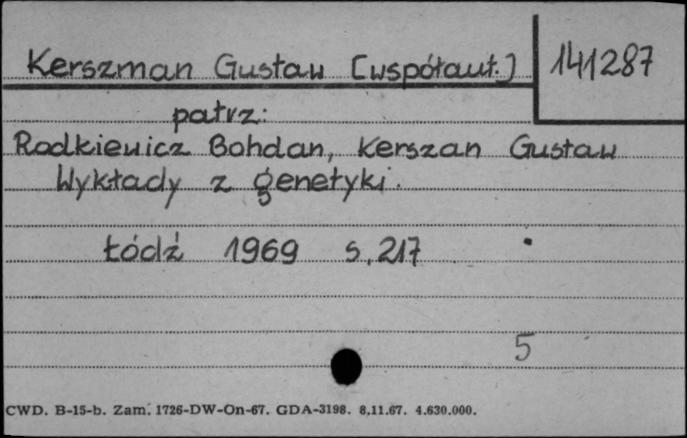 Kerszman Gustaw [współaut.] 141287
patrz:
Rodkiewicz Bohdan, Kerszan Gustaw
Wykłady z genetyki.
Łódź 1969 s. 217
5
CWD. B-15-b. Zam. 1726-DW-On-67. GDA-3198. 8.11.67. 4.630.000.